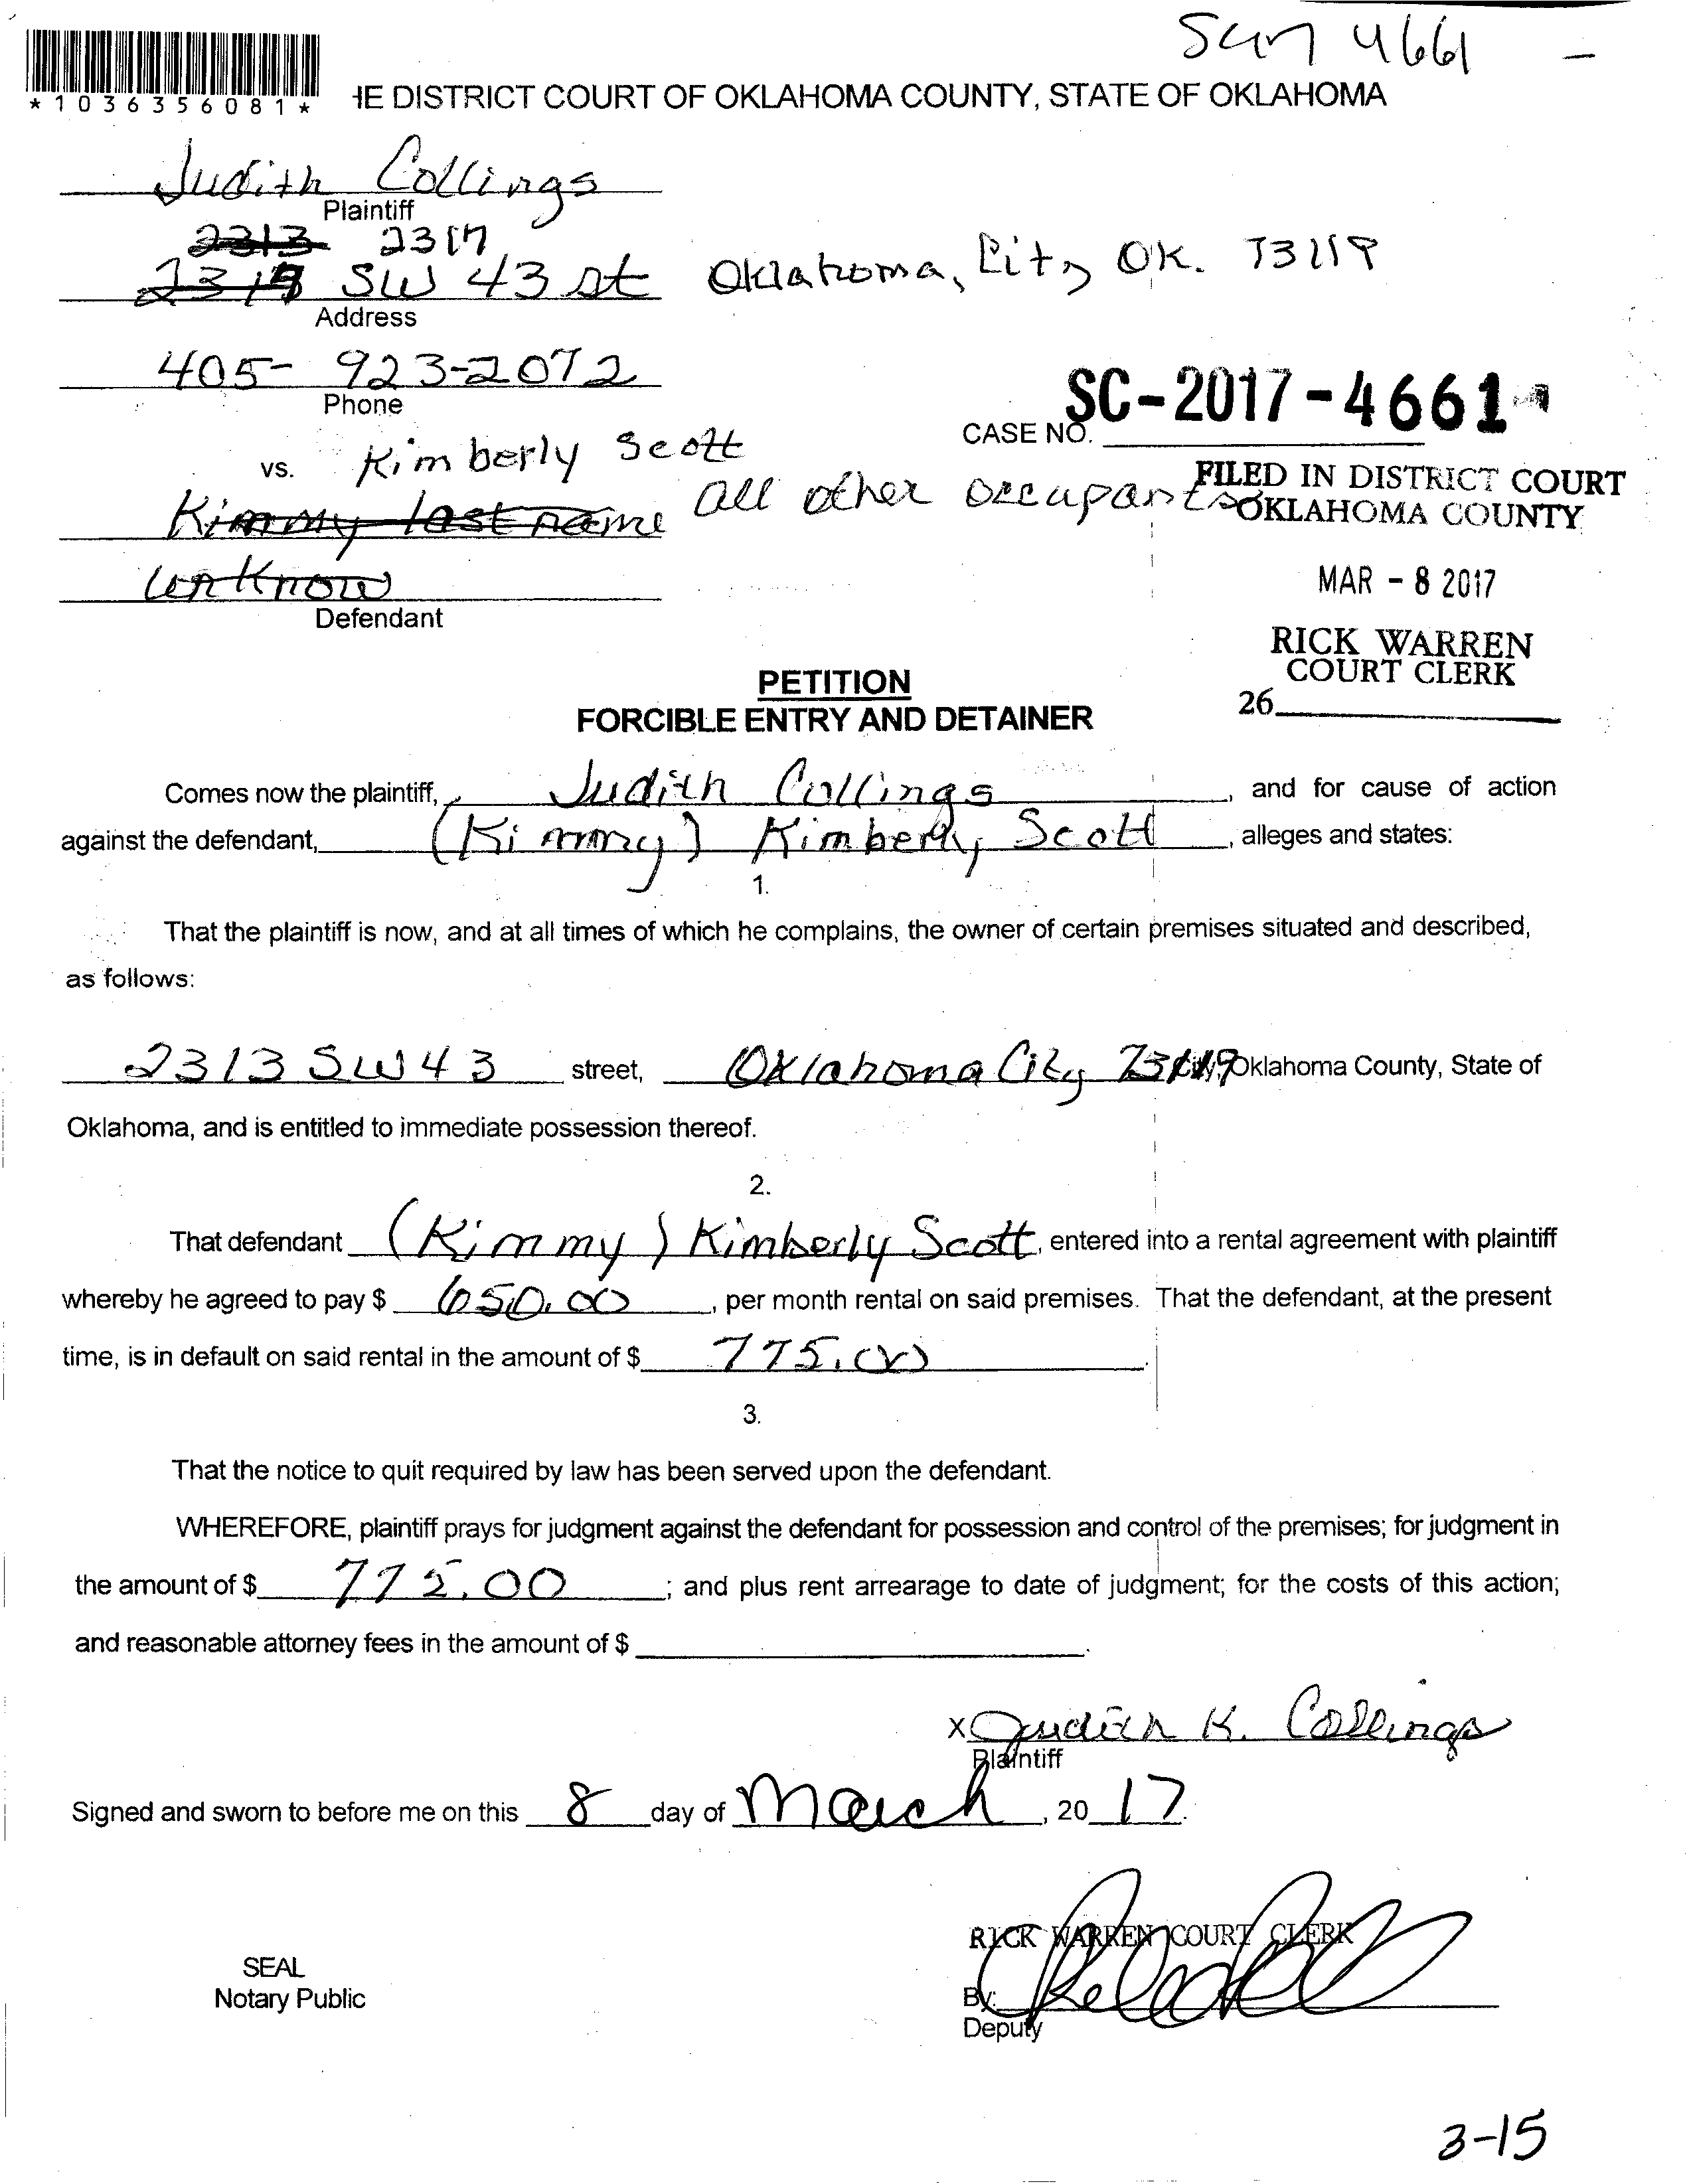 4661 -
*1036356081*
HE DISTRICT COURT OF OKLAHOMA COUNTY, STATE OF OKLAHOMA
Judith Collings
Plaintiff
2313 2317
SW 43 st Oklahoma, City OK. 73119
Address
405- 923-2072
Phone
SC-2017-4661
CASE NO.
vs. Kimberly Scott
Kimmy last name all other occupants
unknow
Defendant
FILED IN DISTRICT COURT
OKLAHOMA COUNTY
MAR - 8 2017
RICK WARREN
COURT CLERK
26
PETITION
FORCIBLE ENTRY AND DETAINER
Comes now the plaintiff, Judith Collings, and for cause of action
against the defendant, (Kimmy) Kimberly Scott, alleges and states:
1.
That the plaintiff is now, and at all times of which he complains, the owner of certain premises situated and described,
as follows:
2313 SW 43 street, Oklahoma City 73119 City, Oklahoma County, State of
Oklahoma, and is entitled to immediate possession thereof.
2.
That defendant (Kimmy) Kimberly Scott, entered into a rental agreement with plaintiff
whereby he agreed to pay $ 650.00, per month rental on said premises. That the defendant, at the present
time, is in default on said rental in the amount of $ 775.00.
3.
That the notice to quit required by law has been served upon the defendant.
WHEREFORE, plaintiff prays for judgment against the defendant for possession and control of the premises; for judgment in
the amount of $ 775.00; and plus rent arrearage to date of judgment; for the costs of this action;
and reasonable attorney fees in the amount of $.
X Judith K. Collings
Plaintiff
Signed and sworn to before me on this 8 day of March, 20 17.
RICK WARREN COURT CLERK
SEAL
Notary Public
By:
Deputy
3-15